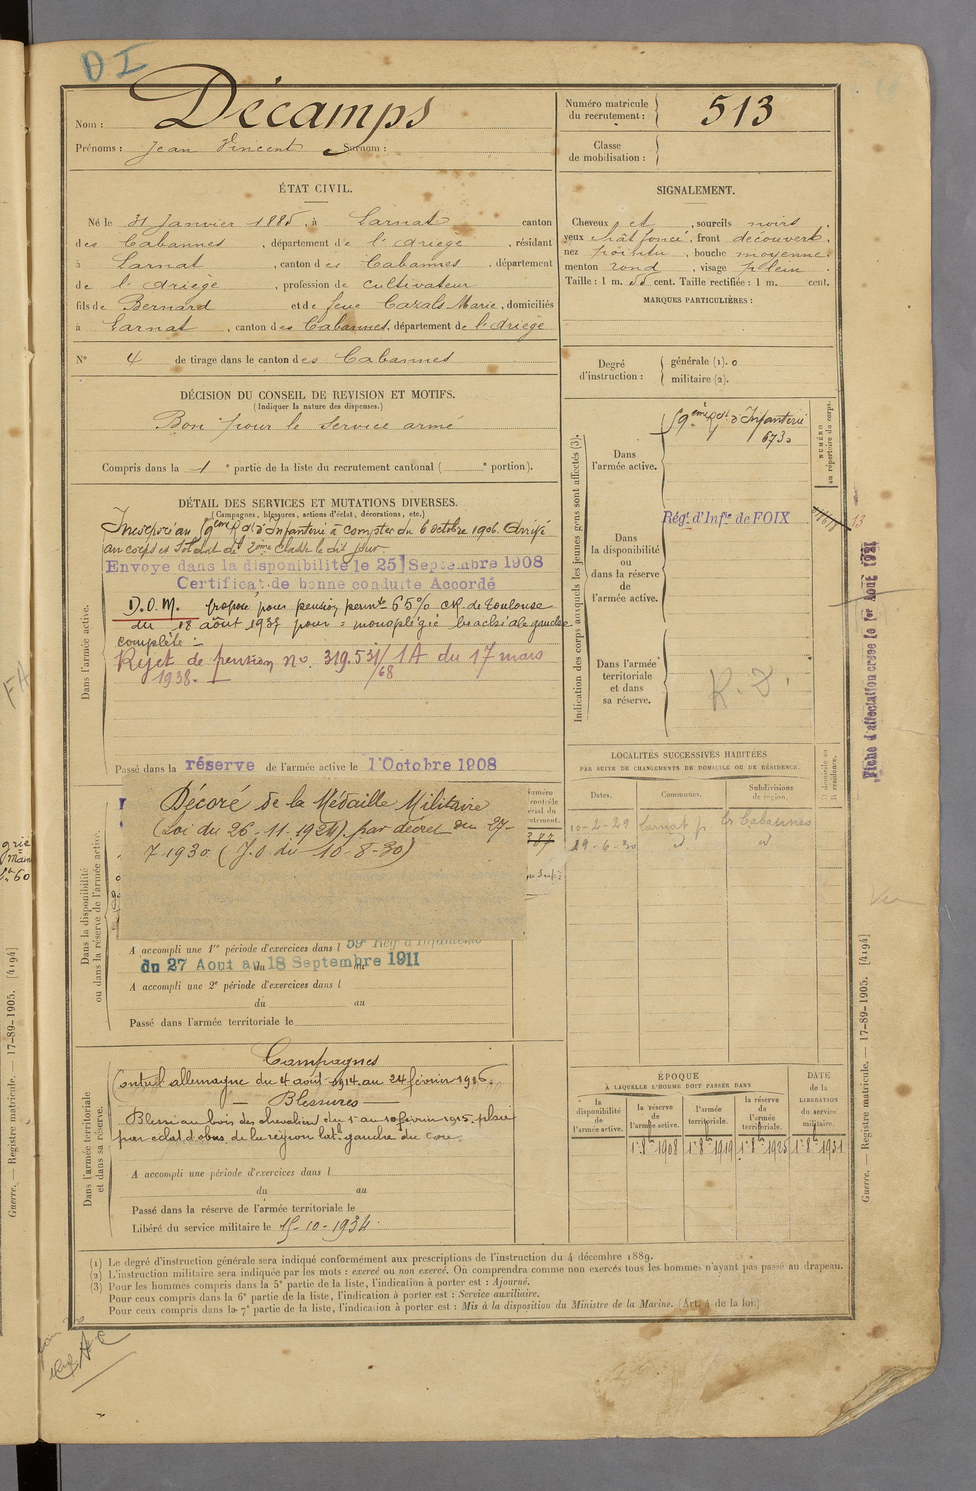 D I
Nom : Décamps
Prénoms : Jean Vincent Surnom :
Numéro matricule du recrutement : 513
Classe de mobilisation :
ÉTAT CIVIL.
Né le 31 Janvier 1885, à Larnat canton
des Cabannes, département de l'Ariège, résidant
à Larnat, canton des Cabannes, département
de l'Ariège, profession de cultivateur
fils de Bernard et de feue Cazals Marie, domiciliés
à Larnat, canton des Cabannes, département de l'Ariège
N° 4 de tirage dans le canton des Cabannes
SIGNALEMENT.
Cheveux et, sourcils noirs,
yeux chât foncé, front découvert,
nez pointu, bouche moyenne,
menton rond, visage plein.
Taille : 1 m. 55 cent. Taille rectifiée : 1 m. cent.
MARQUES PARTICULIÈRES :
Degré d'instruction :
générale (1). 0
militaire (2).
DÉCISION DU CONSEIL DE REVISION ET MOTIFS.
(Indiquer la nature des dispenses.)
Bon pour le service armé
Compris dans la 1e partie de la liste du recrutement cantonal ( e portion).
DÉTAIL DES SERVICES ET MUTATIONS DIVERSES.
(Campagnes, blessures, actions d'éclat, décorations, etc.)
Dans l'armée active.
Incorporé au 59ème Rgt d'Infanterie à compter du 6 octobre 1906. Arrivé
au corps et soldat de 2ème classe le dit jour.
Envoyé dans la disponibilité le 25 Septembre 1908
Certificat de bonne conduite Accordé
D.O.M. Proposé pour pension permte 65% CR de Toulouse
du 18 août 1937 pour : monoplégie brachiale gauche
complète :-
Rejet de pension no. 319.531/68/1A du 17 mars
1938.
Passé dans la réserve de l'armée active le 1 Octobre 1908
Dans la disponibilité ou dans la réserve de l'armée active.
Décoré de la Médaille Militaire
(Loi du 26-11-1921) par décret du 27-
7-1930 (J.O du 10-8-30)
A accompli une 1re période d'exercices dans l 59e Reg d'Infanterie
du 27 Aout au 18 Septembre 1911
A accompli une 2e période d'exercices dans l
du au
Passé dans l'armée territoriale le
Dans l'armée territoriale et dans sa réserve.
Campagnes
Contre l'allemagne du 4 août 1914 au 24 février 1916.
Blessures
Blessé au bois des chevaliers du 1 au 10 février 1915. plaie
par éclat d'obus de la région latle gauche du cou.
A accompli une période d'exercices dans l
du au
Passé dans la réserve de l'armée territoriale le
Libéré du service militaire le 15-10-1934
Indication des corps auxquels les jeunes gens sont affectés (3).
NUMÉRO au répertoire du corps.
Dans l'armée active.
59ème Rgt d'Infanterie
6730
Dans la disponibilité ou dans la réserve de l'armée active.
Régt d'Infie de FOIX
Dans l'armée territoriale et dans sa réserve.
Fiche d'affectation créée le 1er Août 1921
LOCALITÉS SUCCESSIVES HABITÉES
PAR SUITE DE CHANGEMENTS DE DOMICILE OU DE RÉSIDENCE.
Dates. Communes. Subdivisions de région. D domicile ou R résidence.
10-2-29 Larnat p Les Cabannes
29-6-30 d° d°
ÉPOQUE
À LAQUELLE L'HOMME DOIT PASSER DANS
DATE de la LIBÉRATION du service militaire.
la disponibilité de l'armée active.
la réserve de l'armée active. 1 8bre 1908
l'armée territoriale. 1 8bre 1919
la réserve de l'armée territoriale. 1 8bre 1925
1 8bre 1931
(1) Le degré d'instruction générale sera indiqué conformément aux prescriptions de l'instruction du 4 décembre 1889.
(2) L'instruction militaire sera indiquée par les mots : exercé ou non exercé. On comprendra comme non exercés tous les hommes n'ayant pas passé au drapeau.
(3) Pour les hommes compris dans la 5e partie de la liste, l'indication à porter est : Ajourné.
Pour ceux compris dans la 6e partie de la liste, l'indication à porter est : Service auxiliaire.
Pour ceux compris dans la 7e partie de la liste, l'indication à porter est : Mis à la disposition du Ministre de la Marine. (Art. 4 de la loi.)
Guerre. — Registre matricule. — 17-89-1905. [4194]
Guerre. — Registre matricule. — 17-89-1905. [4194]